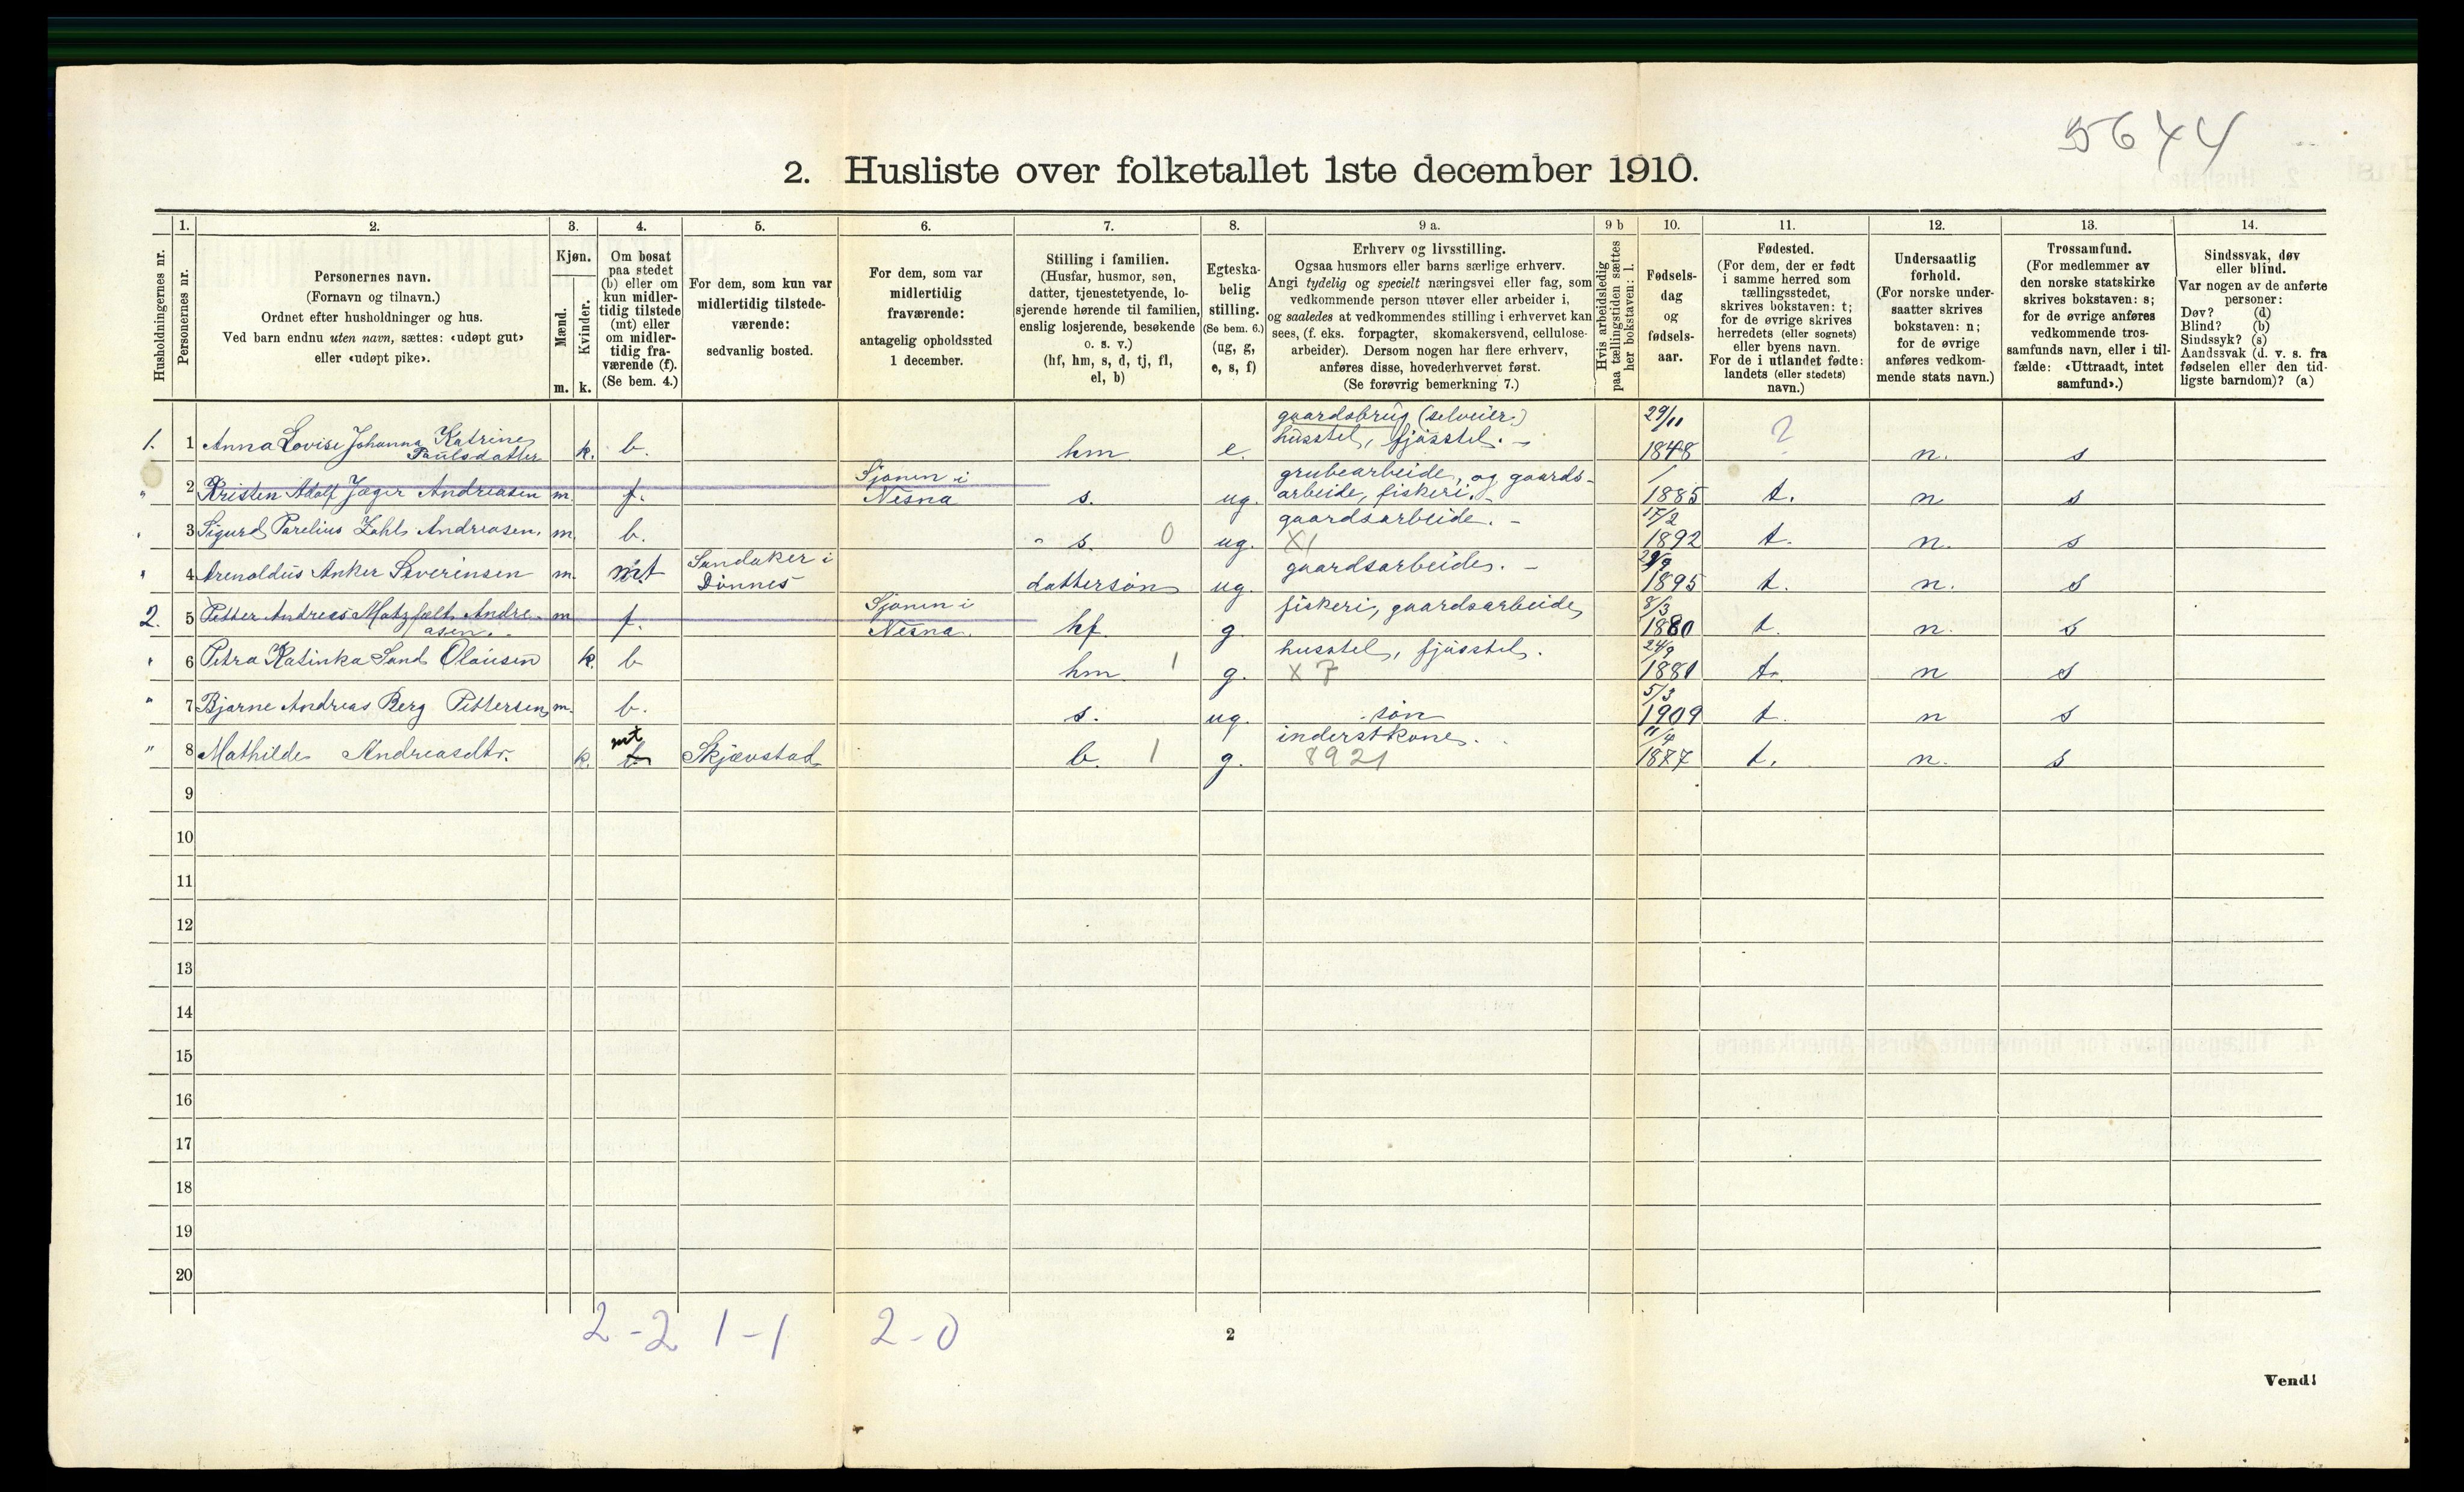 5644
2. Husliste over folketallet 1ste december 1910.
1. 2. 3. 4. 5. 6. 7. 8. 9 a. 9 b 10. 11. 12. 13. 14.
Husholdningernes nr.
Personernes nr.
Personernes navn.
(Fornavn og tilnavn.)
Ordnet efter husholdninger og hus.
Ved barn endnu uten navn, sættes: «udøpt gut»
eller «udøpt pike».
Kjøn.
Mænd.
Kvinder.
m. k.
Om bosat
paa stedet
(b) eller om
kun midler-
tidig tilstede
(mt) eller
om midler-
tidig fra-
værende (f).
(Se bem. 4.)
For dem, som kun var
midlertidig tilstede-
værende:
sedvanlig bosted.
For dem, som var
midlertidig
fraværende:
antagelig opholdssted
1 december.
Stilling i familien.
(Husfar, husmor, søn,
datter, tjenestetyende, lo-
sjerende hørende til familien,
enslig losjerende, besøkende
o. s. v.)
(hf, hm, s, d, tj, fl,
el, b)
Egteska-
belig
stilling.
(Se bem. 6.)
(ug, g,
e, s, f)
Erhverv og livsstilling.
Ogsaa husmors eller barns særlige erhverv.
Angi tydelig og specielt næringsvei eller fag, som
vedkommende person utøver eller arbeider i,
og saaledes at vedkommendes stilling i erhvervet kan
sees, (f. eks. forpagter, skomakersvend, cellulose-
arbeider). Dersom nogen har flere erhverv,
anføres disse, hovederhvervet først.
(Se forøvrig bemerkning 7.)
Hvis arbeidsledig
paa tællingstiden sættes
her bokstaven: l.
Fødsels-
dag
og
fødsels-
aar.
Fødested.
(For dem, der er født
i samme herred som
tællingsstedet,
skrives bokstaven: t;
for de øvrige skrives
herredets (eller sognets)
eller byens navn.
For de i utlandet fødte:
landets (eller stedets)
navn.)
Undersaatlig
forhold.
(For norske under-
saatter skrives
bokstaven: n;
for de øvrige
anføres vedkom-
mende stats navn.)
Trossamfund.
(For medlemmer av
den norske statskirke
skrives bokstaven: s;
for de øvrige anføres
vedkommende tros-
samfunds navn, eller i til-
fælde: «Uttraadt, intet
samfund».)
Sindssvak, døv
eller blind.
Var nogen av de anførte
personer:
Døv? (d)
Blind? (b)
Sindssyk? (s)
Aandssvak (d. v. s. fra
fødselen eller den tid-
ligste barndom)? (a)
gaardsbrug (selveier) 29/11
1. 1 Anna Lovise Johanna Katrine Paulsdatter k. b. hm e. husstel, fjøsstel. - 1848 ? n. s
" 2 Kristen Adolf Jæger Andreasen m. f. Sjonen i Nesna s. ug. grubearbeide, og gaards- arbeide, fiskeri. - / 1885 t. n s
" 3 Sigurd Parelius Zahl Andreasen. m. b. " s. 0 ug. gaardsarbeide. - X1 17/2 1892 t. n. s
" 4 Arenoldus Anker Severinsen m. mt Sandaker i Dönnes dattersøn ug. gaardsarbeide. - 29/9 1895 t. n. s
2. 5 Petter Andreas Matzfelt Andre- asen. m. f. Sjonen i Nesna. hf. g. fiskeri, gaardsarbeide 8/3 1880 t. n. s
" 6 Petra Katinka Sand Olausen k. b hm 1 g. husstel, fjøsstel. X 7 24/9 1881 t. n s
" 7 Bjarne Andreas Berg Pettersen m. b. s. ug. søn 5/3 1909 t. n s
" 8 Mathilde Andreasdtr. k. mt b. Skjævstad b. 1 g. inderstkone. 8921 11/4 1877 t. n. s
9
10
11
12
13
14
15
16
17
18
19
20
2-2 1-1 2-0
2
Vend!